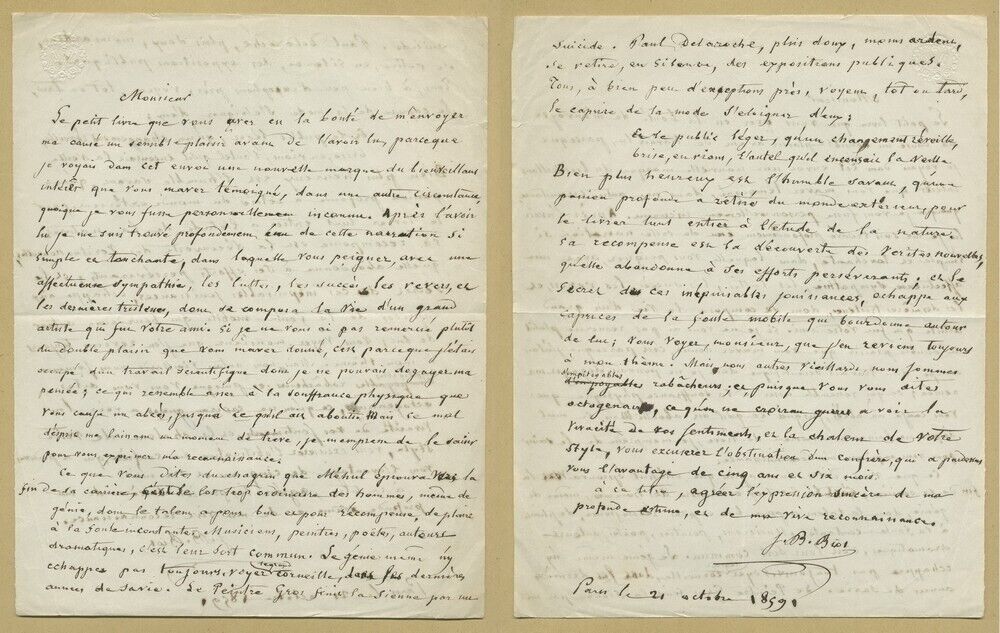 Monsieur
Le petit livre que vous avez eu la bonté de m'envoyer
m'a causé un sensible plaisir avant de l'avoir lu, parceque
je voyais dans cet envoi une nouvelle marque du bienveillant
intérêt que vous m'avez témoigné, dans une autre circonstance,
quoique je vous fusse personnellement inconnu. Après l'avoir
lu je me suis trouvé profondément ému de cette narration si
simple et touchante, dans laquelle vous peignez, avec une
affectueuse sympathie, les luttes, les succès, les revers, et
les dernières tristesses, dont se composa la vie d'un grand
artiste qui fut votre ami. Si je ne vous ai pas remercié plutôt
du double plaisir que vous m'avez donné, c'est parceque j'étais
occupé d'un travail scientifique dont je ne pouvais dégager ma
pensée; ce qui ressemble assez à la souffrance physique que
vous cause un abcès, jusqu'à ce qu'il ait abouti. Mais ce mal
me laissant un moment de trève, je m'empresse de le saisir
pour vous exprimer ma reconnaissance.
Ce que vous dites du chagrin que Méhul éprouva vers la
fin de sa carrière, est le sort trop ordinaire des hommes, même de
génie, dont le talent a pour but et pour récompense, de plaire
à la foule inconstante. Musiciens, peintres, poëtes, auteurs
dramatiques, c'est leur sort commun. Le génie même n'y
échappe pas toujours, voyez Corneille, dans les dernières
années de sa vie. Le Peintre Gros finit la sienne par un
suicide. Paul Delaroche, plus doux, moins ardent,
se retire, en silence, des expositions publiques.
Tous, à bien peu d'exceptions près, voyent, tôt ou tard,
le caprice de la mode s'éloigner d'eux;
Et le public léger, qu'un changement réveille,
brise, en riant, l'autel qu'il encensait la veille.
Bien plus heureux est l'humble savant, qu'une
passion profonde a retiré du monde extérieur, pour
le livrer tout entier à l'étude de la nature.
Sa récompense est la découverte des vérités nouvelles,
qu'elle abandonne à ses efforts persévérants. et le
secret de ces inépuisables jouissances, échappe aux
caprices de la foule mobile qui bourdonne autour
de lui; vous voyez, monsieur, que j'en reviens toujours
à mon thème. Mais nous autres vieillards, nous sommes
impitoyables
rabâcheurs; et puisque vous vous dites
octogénaire, ce qu'on ne croirait guère à voir la
vivacité de vos sentiments, et la chaleur de votre
style, vous excuserez l'obstination d'un confrère, qui a par dessus
vous l'avantage de cinq ans et six mois.
à ce titre, agréez l'expression sincère de ma
profonde estime, et de ma vive reconnaissance.
J. B. Biot
Paris le 21 octobre 1859